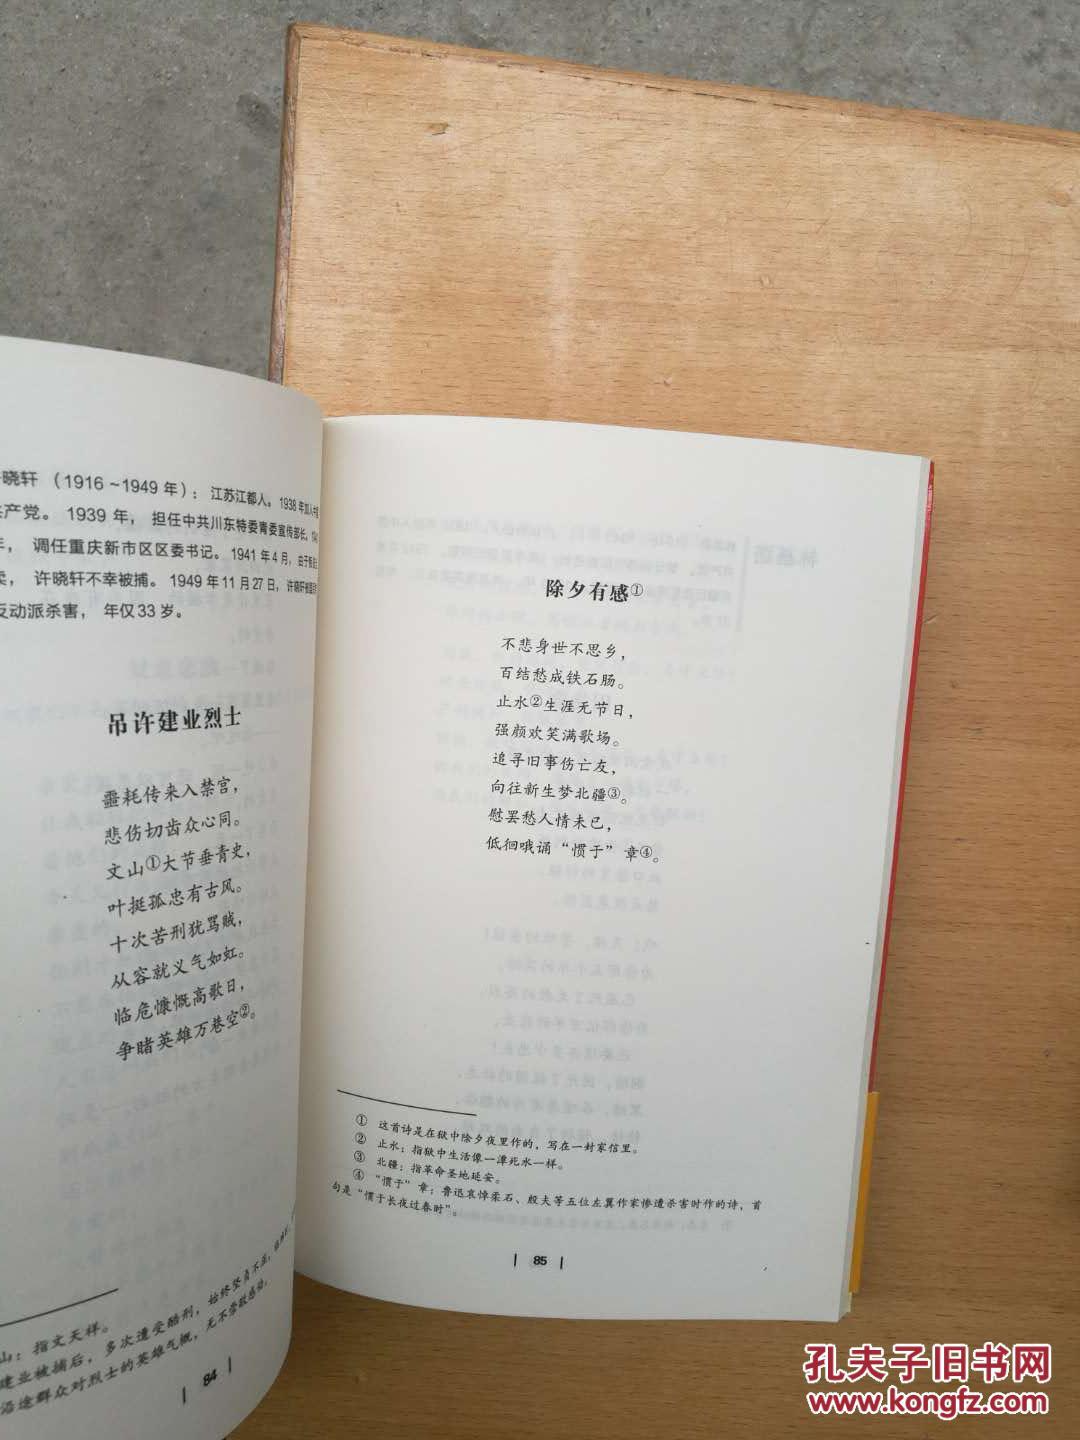 晓轩 (1916~1949 年): 江苏江都人。1938 年加入中
产党。 1939 年, 担任中共川东特委青委宣传部长。
调任重庆新市区区委书记。1941 年 4 月, 由于
许晓轩不幸被捕。 1949 年 11 月 27 日, 许晓轩被
反动派杀害, 年仅 33 岁。
吊许建业烈士
噩耗传来入禁宫,
悲伤切齿众心同。
文山①大节垂青史,
叶挺孤忠有古风。
十次苦刑犹骂贼,
从容就义气如虹。
临危慷慨高歌日,
争睹英雄万巷空②。
山: 指文天祥。
建业被捕后, 多次遭受酷刑, 始终坚贞不屈,
沿途群众对烈士的英雄气概, 无不崇敬感动。
84
除夕有感①
不悲身世不思乡,
百结愁成铁石肠。
止水②生涯无节日,
强颜欢笑满歌场。
追寻旧事伤亡友,
向往新生梦北疆③。
慰罢愁人情未已,
低徊哦诵“惯于”章④。
① 这首诗是在狱中除夕夜里作的, 写在一封家信里。
② 止水: 指狱中生活像一潭死水一样。
③ 北疆: 指革命圣地延安。
④ “惯于”章: 鲁迅哀悼柔石、殷夫等五位左翼作家惨遭杀害时作的诗, 首
句是“惯于长夜过春时”。
85
孔夫子旧书网
www.kongfz.com